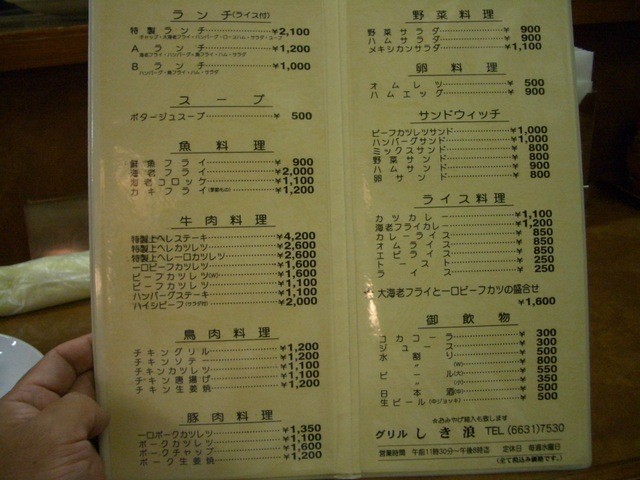 ランチ(ライス付)
特製ランチ ¥2,100
チャップ・大海老フライ・ハンバーグ・ロースハム・サラダ・スープ
Aランチ ¥1,200
海老フライ・ハンバーグ・魚フライ・ハム・サラダ
Bランチ ¥1,000
ハンバーグ・魚フライ・ハム・サラダ
スープ
ポタージュスープ ¥500
魚料理
魚フライ ¥900
海老フライ ¥2,000
海老コロッケ ¥1,100
カキフライ(季節もの) ¥1,200
牛肉料理
特製上ヘレステーキ ¥4,200
特製上ヘレカツレツ ¥2,600
特製上ヘレ一口カツレツ ¥2,600
一口ビーフカツレツ ¥1,600
ビーフカツレツ(大) ¥1,600
ビーフカツレツ ¥1,100
ハンバーグステーキ ¥1,100
ハイシビーフ(サラダ付) ¥2,000
鳥肉料理
チキングリル ¥1,200
チキンソテー ¥1,200
チキンカツレツ ¥1,100
チキン唐揚げ ¥1,100
チキン生姜焼 ¥1,200
豚肉料理
一口ポークカツレツ ¥1,350
ポークカツレツ ¥1,100
ポークチャップ ¥1,600
ポーク生姜焼 ¥1,200
野菜料理
野菜サラダ ¥900
ハムサラダ ¥900
メキシカンサラダ ¥1,100
卵料理
オムレツ ¥500
ハムエッグ ¥900
サンドウィッチ
ビーフカツレツサンド ¥1,000
ハンバーグサンド ¥1,000
ミックスサンド ¥800
野菜サンド ¥800
ハムサンド ¥900
卵サンド ¥800
ライス料理
カツカレー ¥1,100
海老フライカレー ¥1,200
カレーライス ¥850
オムライス ¥850
エビライス ¥850
トースト ¥250
ライス ¥250
大海老フライと一口ビーフカツの盛合せ
¥1,600
御飲物
コカコーラ ¥300
ジュース ¥300
水割り ¥500
〃(W) ¥800
ビール(大) ¥550
〃(小) ¥350
日本酒(中) ¥500
生ビール(中ジョッキ) ¥500
☆おみやげ箱入も致します
グリル しき浪 TEL(6631)7530
営業時間 午前11時30分〜午後8時迄 定休日 毎週水曜日
(全て税込み価格です。)